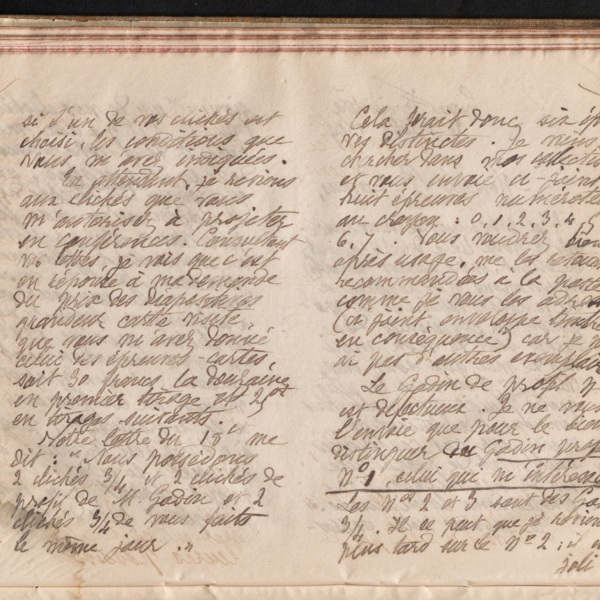 si l'un de vos clichés est
choisi, les conditions que
vous m'avez indiquées.
En attendant, je reviens
aux clichés que vous
m'autorisez à projeter
en conférences. Consultant
vos lettres, je vois que c'est
en réponse à ma demande
du prix des diapositives
grandeur carte visite,
que vous m'avez donné
celui des épreuves-cartes
soit 30 francs la douzaine
en premier tirage et 20f
en tirages suivants.
Votre lettre du 18 ct me
dit : "Nous possédons
2 clichés 3/4 et 2 clichés de
profil de M. Godin et 2
clichés 3/4 de vous faits
le même jour."
Cela ferait donc six ép
ves distinctes. Je viens
chercher dans mes collection
et vous envoie ci-joint
huit épreuves numérotée
au crayon : 0, 1, 2, 3, 4, 5
6, 7. Vous voudrez bien
après usage, me les retour
recommandées à la poste
comme je vous les adres
(ci joint enveloppe timbrée
en conséquence) car je n'
ai pas d'autres exemplair
Le Godin de profil n°
est défectueux. Je ne vous
l'envoie que pour le bien
distinguer du Godin profil
N° 1, celui qui m'intéresse
Les Nos 2 et 3 sont des Go
3/4. Il se peut que je revien
plus tard sur le N° 2 ; il e
joli